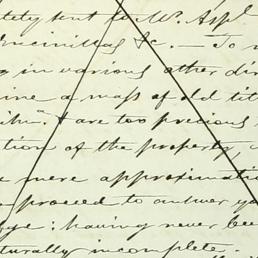 sent to Mr. Appl
&c. — To
in various other di
a mass of old tit
are too precious
tion of the property
mere approximati
proceed to answer yo
; having never bee
turally incomplete.